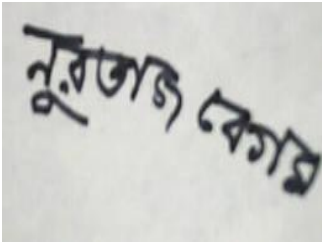 নুরতাজ বেগম